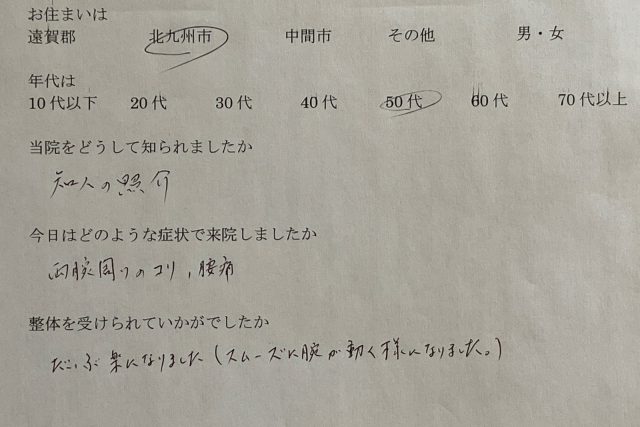 お住まいは
遠賀郡 北九州市 中間市 その他 男・女
年代は
10代以下 20代 30代 40代 50代 60代 70代以上
当院をどうして知られましたか
知人の照介
今日はどのような症状で来院しましたか
両腕周りのコリ、腰痛
整体を受けられていかがでしたか
だいぶ楽になりました(スムーズに腕が動く様になりました。)